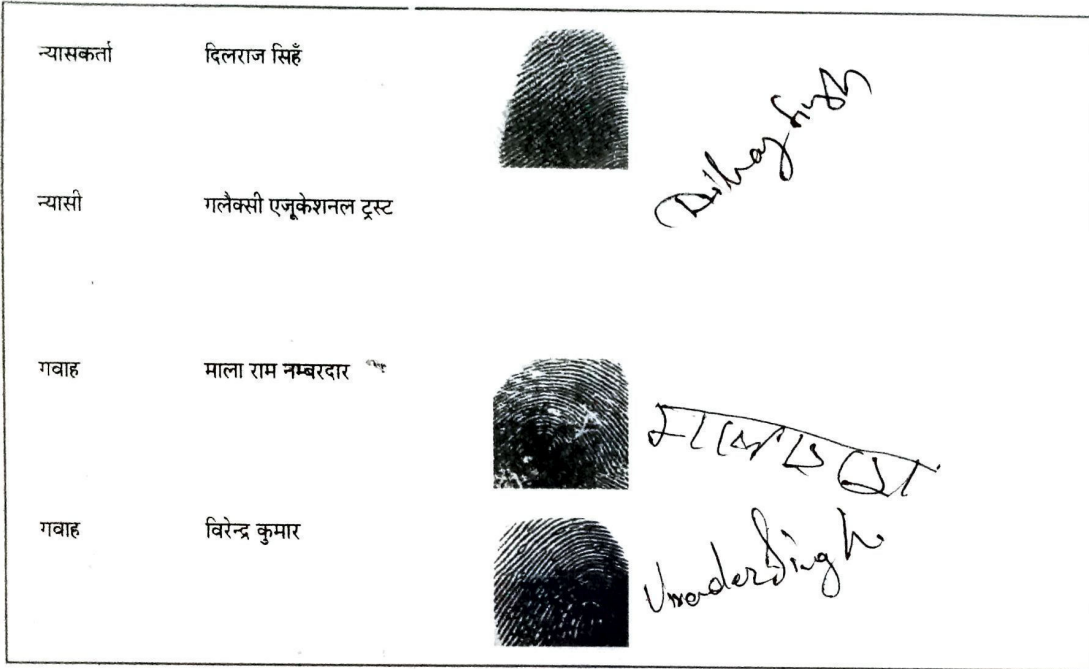 न्यासकर्ता दिलराज सिहँ
Dilraj Singh
न्यासी गलैक्सी एजूकेशनल ट्रस्ट
गवाह माला राम नम्बरदार
गवाह विरेन्द्र कुमार
Virender Singh